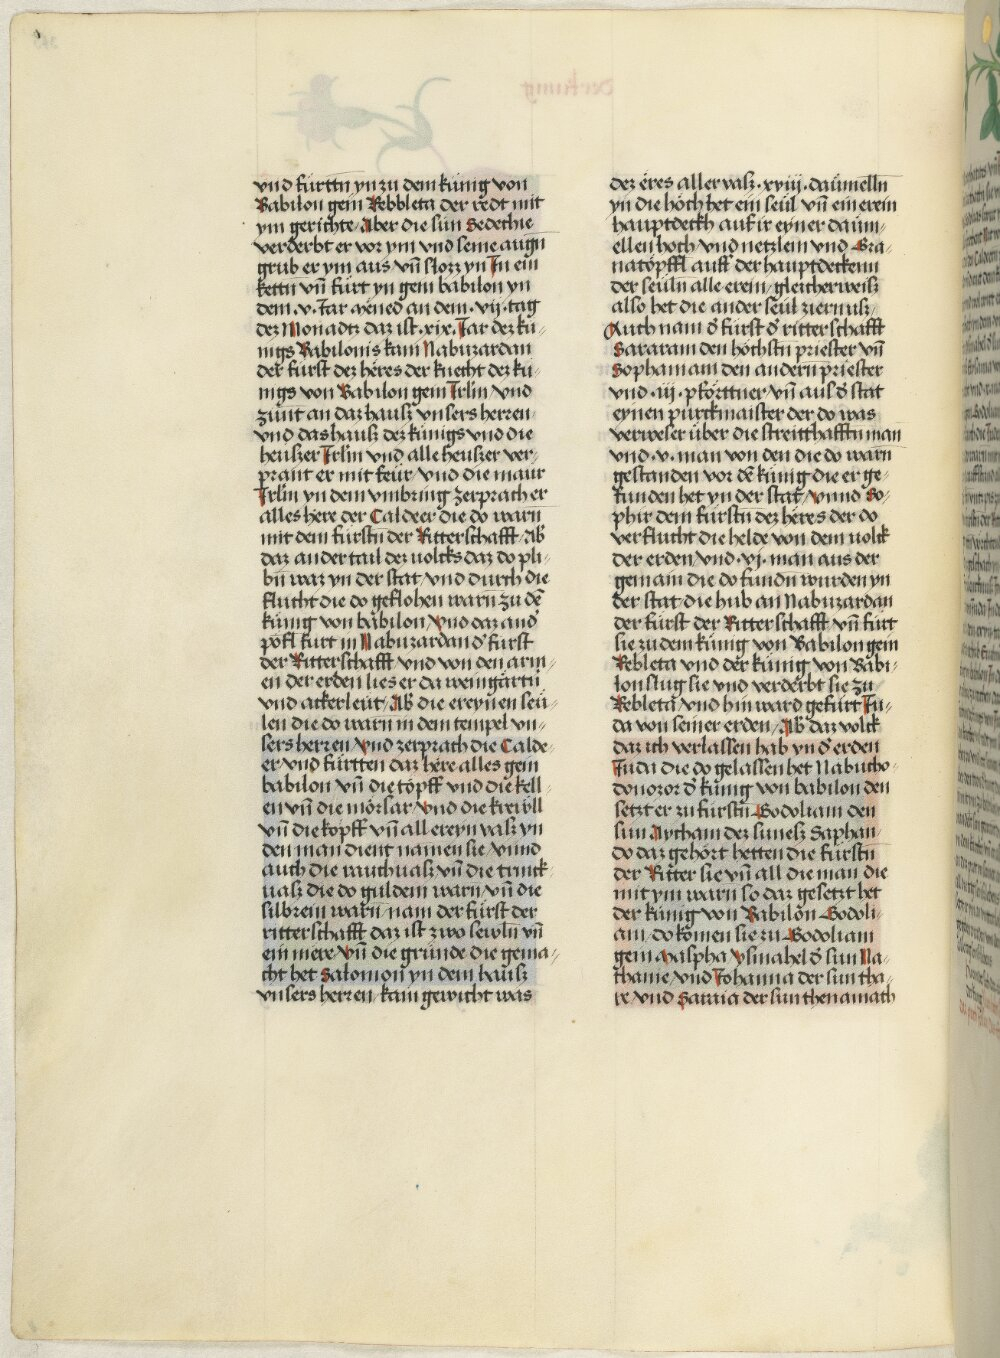 vnd fürttn yn zu dem künig von
Babilon gein Rebbleta der redt mit
ym gerichte Aber die sün Sedechie
verderbt er vor ym vnd seine augn
grub er ym aus vn̄ slozz yn In ein
kettn vn̄ fürt yn gein babilon yn
dem .v. Iar mened an dem .vij. tag
dez Monadtz daz ist .xix. Iar dez kü-
nigs Babilonis kam Nabuzardan
der fürst dez heres der knecht dez kü-
nigs von Babilon gein Irlm vnd
zünt an daz hausz vnsers herren
vnd das hausz dez künigs vnd die
heuszer Irlm vnd alle heuszer ver-
prant er mit feür vnd die maur
Irlm yn dem vmbring zerprach er
alles here der Caldeer die do warn
mit dem fürstn der Ritterschafft Ab̄
daz ander tail dez uolcks daz do pli-
bn̄ waz yn der stat vnd durch die
flucht die do geflohen warn zu dē
künig von babilon vnd daz and
pöfl fürt in Nabuzardan d' fürst
der Ritterschafft vnd von den arm-
en der erden lies er da weingartn̄
vnd ackerleüt Ab̄ die ereynen seü-
len die do warn in dem tempel vn-
sers herren vnd zerprach die Calde-
er vnd fürtten daz here alles gein
babilon vn̄ die töpff vnd die kell-
en vn̄ die mörsar vnd die krewll
vn̄ die köpff vn̄ all ereyn vasz yn
den man dient namen sie vnnd
auch die rauchuasz vn̄ die trinck-
uasz die do guldem warn vn̄ die
silbrein warn nam der fürst der
ritterschafft daz ist zwo sewln vn̄
ein mere vn̄ die gründe die gema-
cht het Salomon yn dem hausz
vnsers herren kain gewicht was
dez eres aller vasz .xviij. daümelln
yn die höch het ein seül vn̄ ein erein
hauptdeckh auf ir eyner daüm-
ellen hoch vnd netzlein vnd Gra-
natöpffl auff der hauptdeckenn
der seüln alle erein gleicherweisz
also het die ander seül ziernusz
Auch nam d' fürst d' ritterschafft
Sararam den höchstn priester vn̄
Sophaniam den andern priester
vnd .iij. pförttner vn̄ aus d' stat
eynen purckmaister der do was
verweser über die streitthafftn man
vnd .v. man von den die do warn
gestanden vor dē künig die er ge-
funden het yn der stat vnnd So-
phir dem fürstn dez heres der do
verflucht die helde von dem uolck
der erden vnd .vj. man aus der
gemain die do fundn wurden yn
der stat die hub an Nabuzardan
der fürst der Ritterschafft vn̄ fürt
sie zu dem künig von Babilon gein
Rebleta vnd der künig von Babi-
lon slug sie vnd verderbt sie zu
Rebleta vnd hin ward gefürt Iu-
da von seiner erden Ab̄ daz volck
daz ich verlassen hab yn d' erden
Iuda die do gelassen het Nabucho-
donozor d' künig von babilon den
setzt er zu fürstn Godoliam den
sun Aycham dez sunesz Saphan
do daz gehört hetten die fürstn
der Ritter sie vn̄ all die man die
mit ym warn so daz gesetzt het
der künig von Babilon Godoli-
am do komen sie zu Godoliam
gein Maspha ysmahel d' sun Na-
thanie vnd Iohanna der sun tha-
re vnd Saraia der sun thenamath